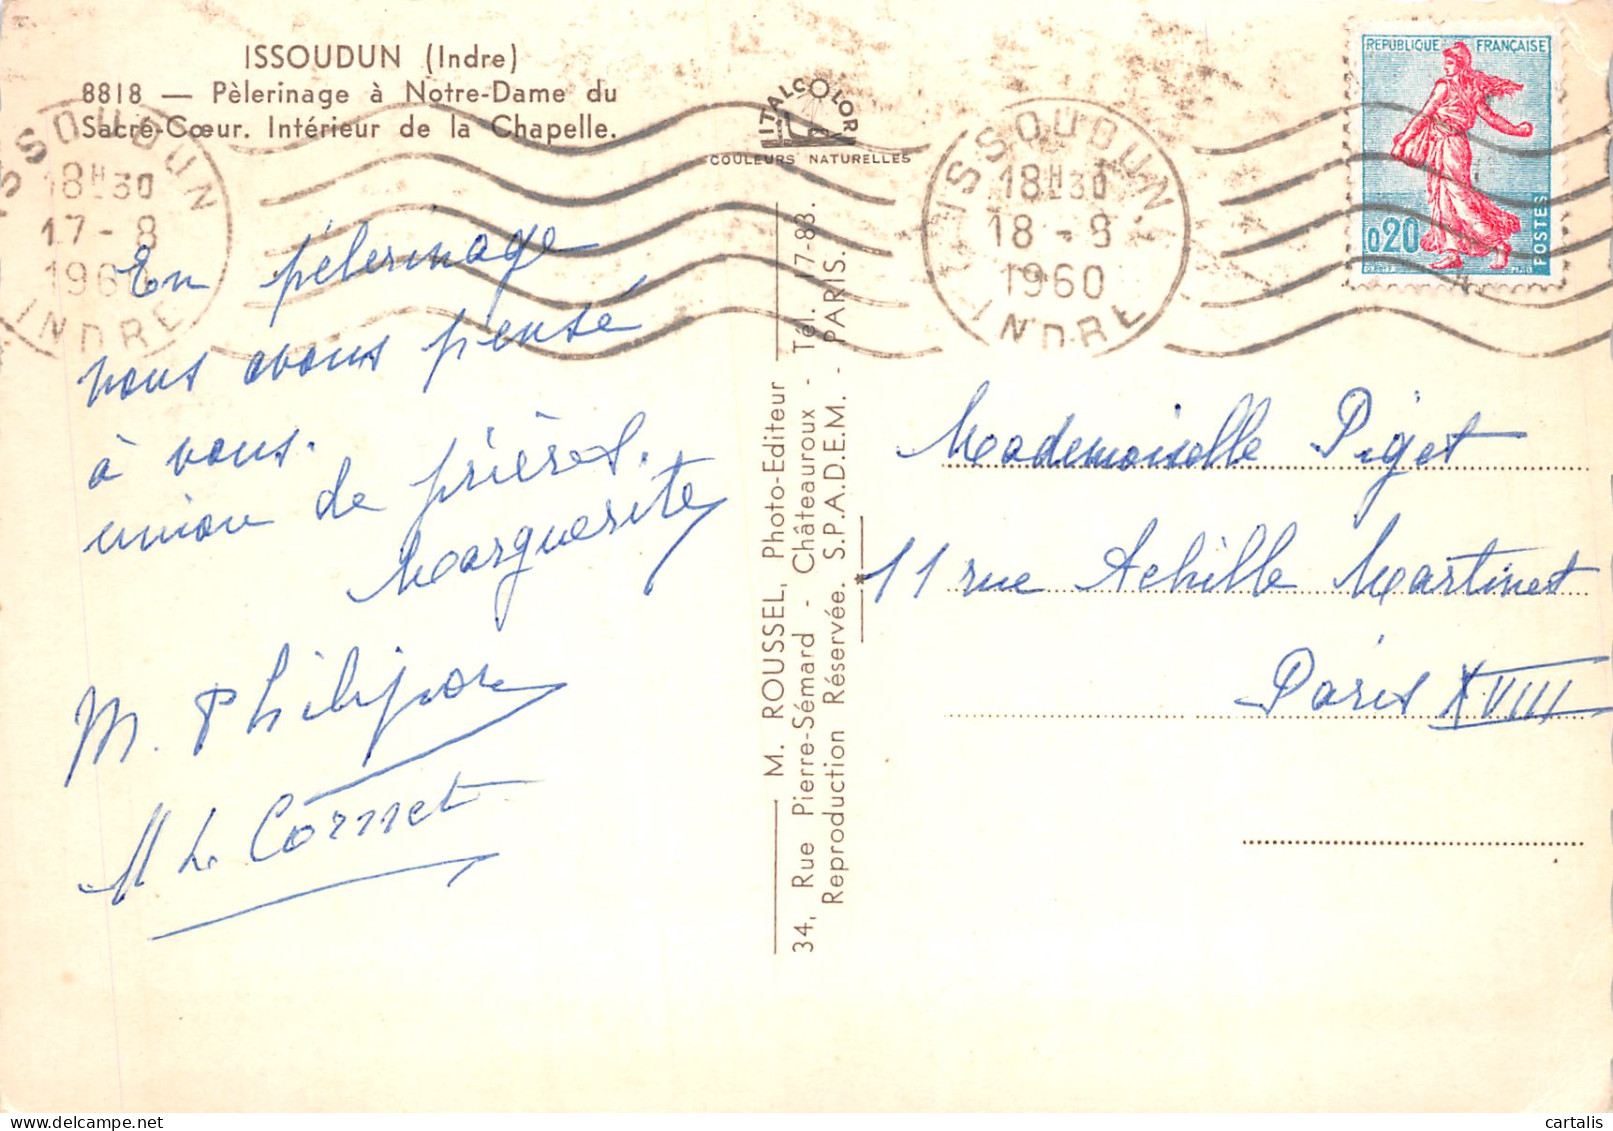 ISSOUDUN (Indre)
8818 — Pèlerinage à Notre-Dame du
Sacré-Cœur. Intérieur de la Chapelle.
ITALCOLOR
COULEURS NATURELLES
ISSOUDUN
18H30
17-8
1960
INDRE
ISSOUDUN
18H30
18-8
1960
INDRE
REPUBLIQUE FRANÇAISE
0,20
POSTES
En pèlerinage
nous avons pensé
à vous.
union de prières.
Marguerite
M. Philipon
M L. Cornet
M. ROUSSEL, Photo-Editeur
34, Rue Pierre-Sémard - Châteauroux - Tél. 17-83.
Reproduction Réservée. S.P.A.D.E.M. - PARIS.
Mademoiselle Piget
11 rue Achille Martinet
Paris XVIII
cartalis